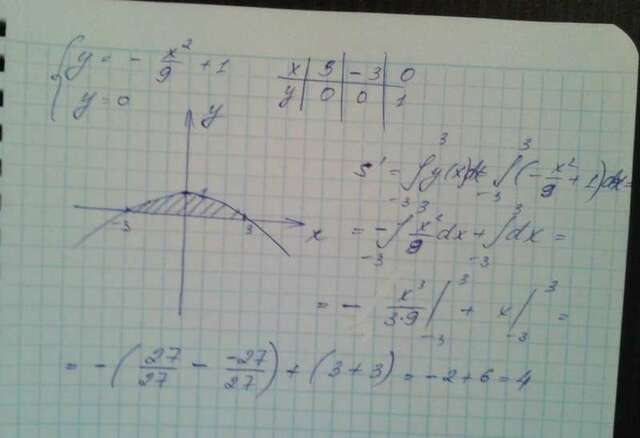 { y = - x²/9 + 1
y = 0
x | 3 | -3 | 0
y | 0 | 0 | 1
y
-3 3 x
S = ∫₋₃³ y(x)dx = ∫₋₃³ (-x²/9 + 1)dx =
= -∫₋₃³ x²/9 dx + ∫₋₃³ dx =
= - x³/3·9 /₋₃³ + x /₋₃³ =
= -(27/27 - -27/27) + (3+3) = -2+6 = 4